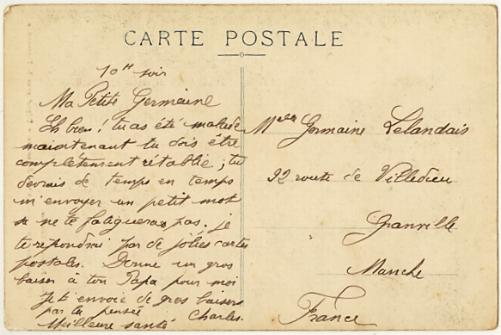 CARTE POSTALE
10H soir
Ma Petite Germaine
Eh bien! tu as été malade
maintenant tu dois être
complètement rétablie, tu
devrais de temps en temps
m'envoyer un petit mot
je ne te fatigueras pas. je
te repondrai par de jolies cartes
postales. Donne un gros
baiser à ton Papa pour moi
je t'envoie de gros baisers
par la pensée
Meilleure santé Charles.
Melle Germaine Lelandais
92 route de Villedieu
Granville
Manche
France